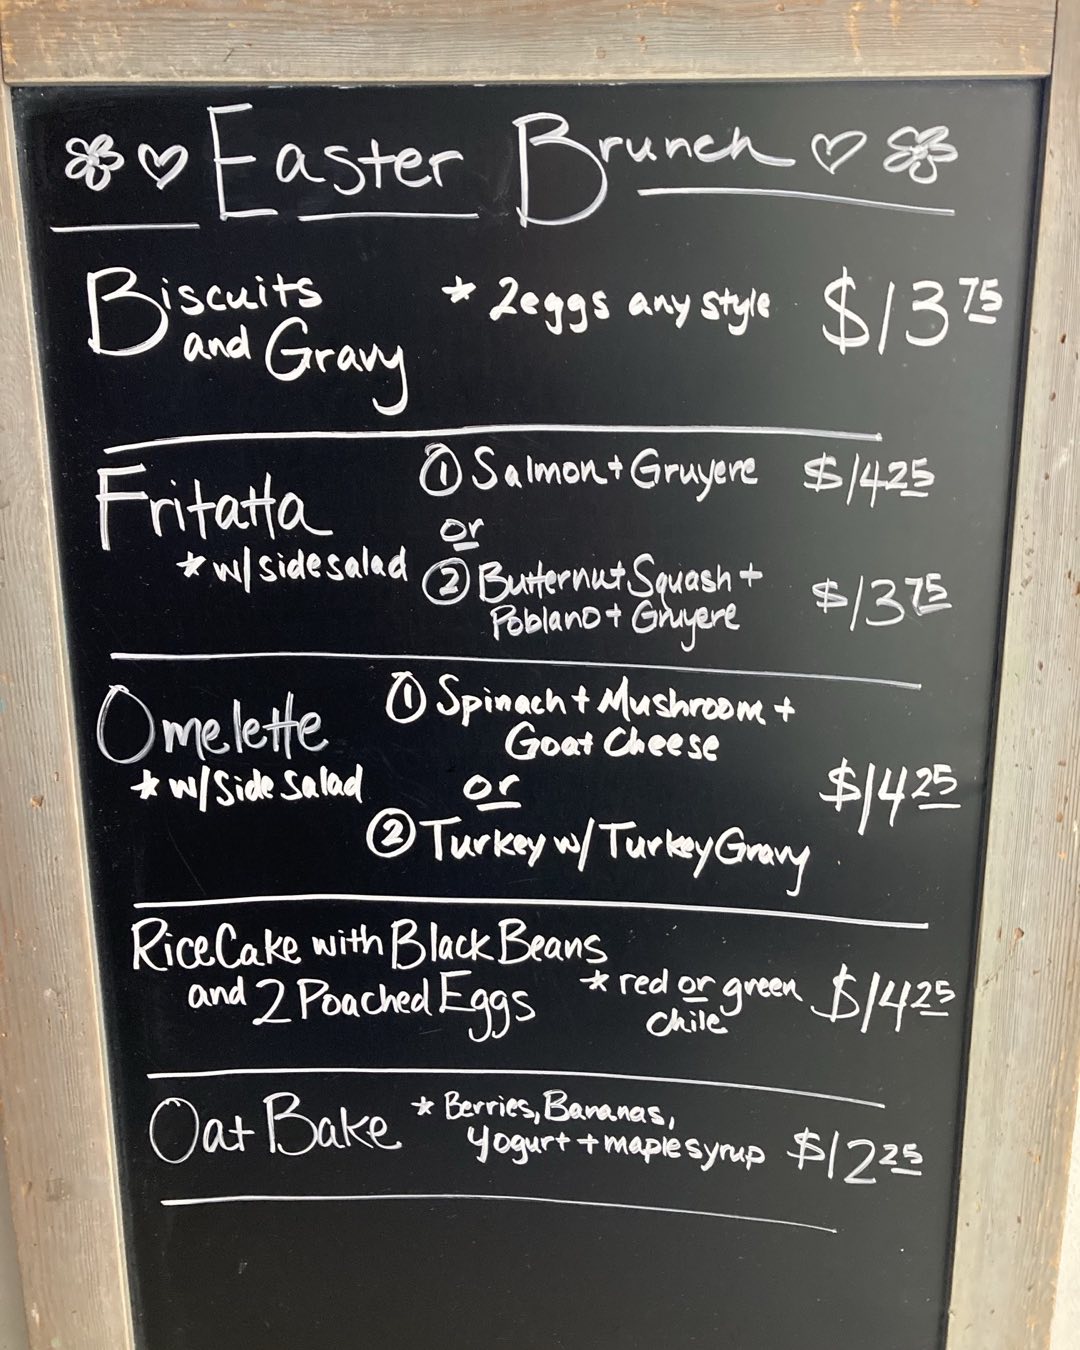 Easter Brunch
Biscuits * 2 eggs any style $13 75
and Gravy
Fritatta ① Salmon + Gruyere $14 25
or
* w/ side salad ② Butternut Squash + $13 75
Poblano + Gruyere
Omelette ① Spinach + Mushroom +
Goat Cheese
* w/ Side Salad or $14 25
② Turkey w/ Turkey Gravy
Rice Cake with Black Beans
and 2 Poached Eggs * red or green $14 25
chile
Oat Bake * Berries, Bananas,
yogurt + maple syrup $12 25